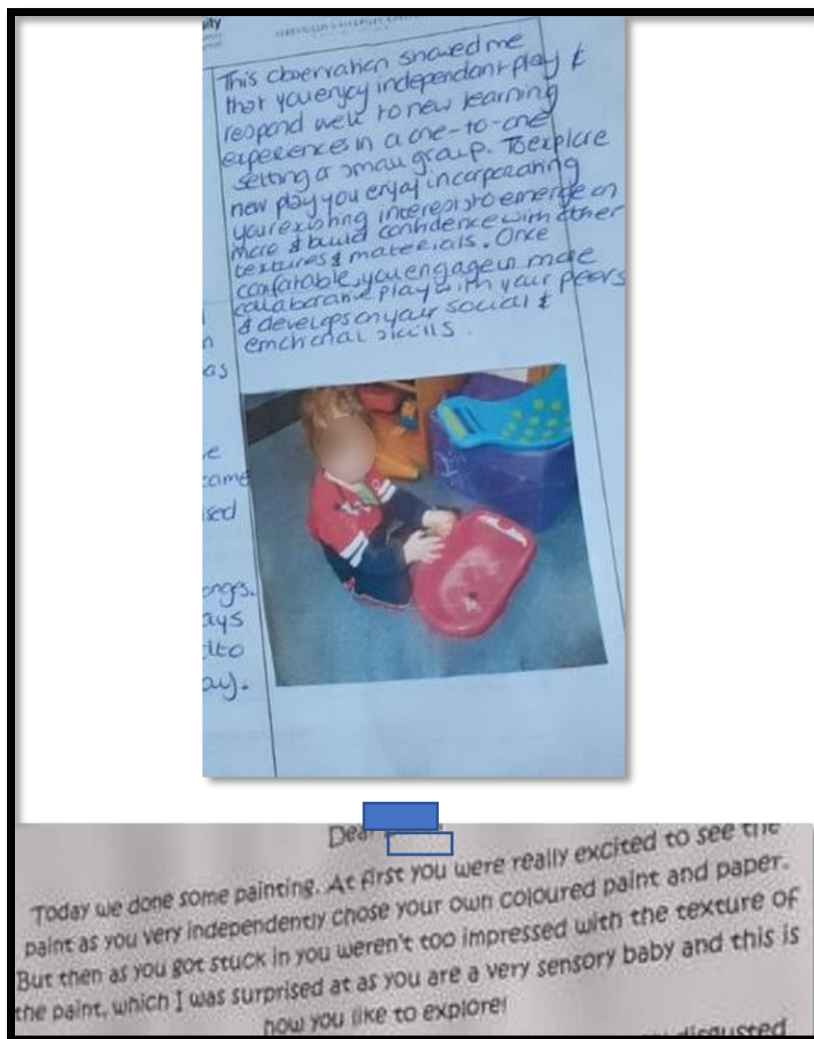 This observation showed me
that you enjoy independant play &
respond well to new learning
experiences in a one-to-one
setting or small group. To explore
new play you enjoy incorporating
your existing interests to emerge on
more & build confidence with other
textures & materials. Once
comfortable, you engage in more
collaborative play with your peers
& develops on your social &
emotional skills.
as
came
onges.
ays
ay.
Dear
Today we done some painting. At first you were really excited to see the
paint as you very independently chose your own coloured paint and paper.
But then as you got stuck in you weren't too impressed with the texture of
the paint, which I was surprised at as you are a very sensory baby and this is
how you like to explore!
disgusted